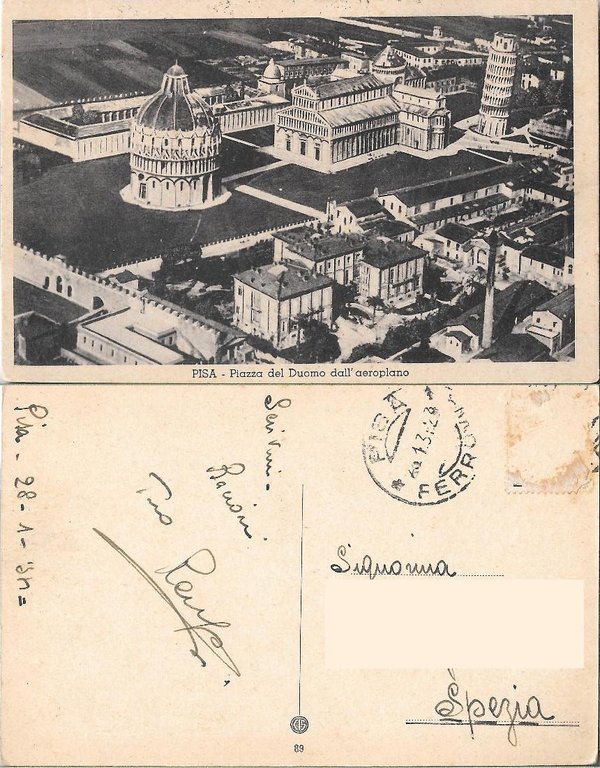 PISA - Piazza del Duomo dall'aeroplano
Pisa - 28-1-
Scrivimi -
Bacioni
Tuo
PISA
FERROVIA
Signorina
Spezia
89